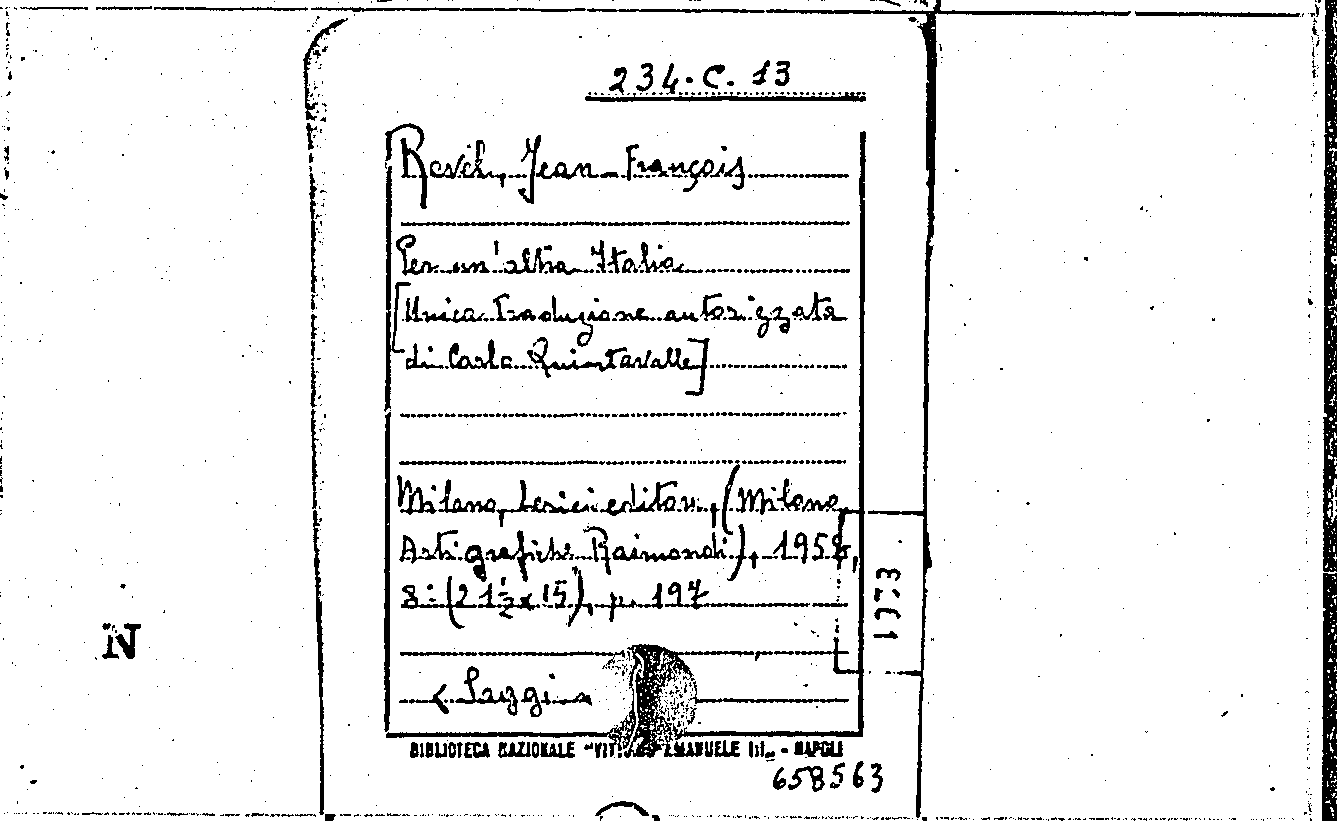 234.C.13
Revel, Jean-François
Per un'altra Italia
[Unica traduzione autorizzata
di Carla Quintavalle]
Milano, Lerici editori, (Milano,
Arti grafiche Raimondi), 1958,
8° (21½ x 15), p. 197
1973
N
< Saggi »
BIBLIOTECA NAZIONALE "VITTORIO EMANUELE III„ - NAPOLI
658563